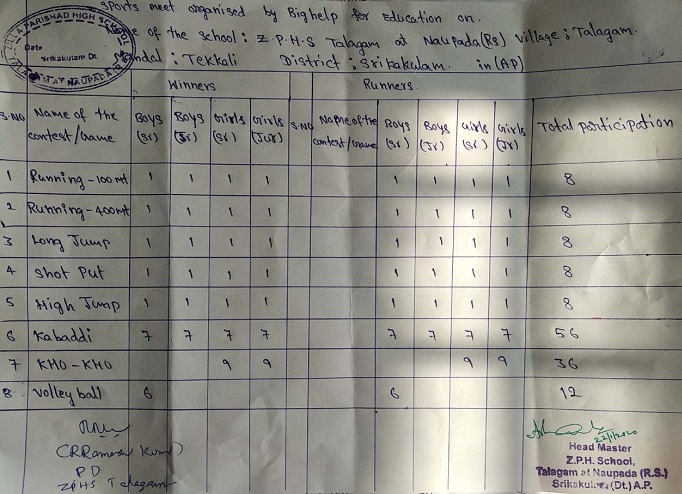 sports meet organised by Bighelp for Education on.
of the school: Z.P.H.S Talagam at Naupada(RS) village: Talagam.
Mandal: Tekkali District: Srikakulam. in (AP)
ZILLA PARISHAD HIGH SCHOOL
Date
Srikakulam Dt
AT NAUPADA
Winners Runners
S.NO Name of the contest/Game Boys (Sr) Boys (Jr) Girls (Sr) Girls S.NO Name of the contest/Game Boys (Sr) Boys (Jr) Girls (Sr) Girls (Jr) Total participation
1 Running-100mt 1 1 1 1 1 1 1 1 8
2 Running-400mt 1 1 1 1 1 1 1 1 8
3 Long Jump 1 1 1 1 1 1 1 1 8
4 Shot Put 1 1 1 1 1 1 1 1 8
5 High Jump 1 1 1 1 1 1 1 1 8
6 Kabaddi 7 7 7 7 7 7 7 7 56
7 KHO-KHO 9 9 9 9 36
8 Volley ball 6 6 12
PD
ZPHS Talagam
22/1/2020
Head Master
Z.P.H. School,
Talagam at Naupada (R.S.)
Srikakulam (Dt.) A.P.